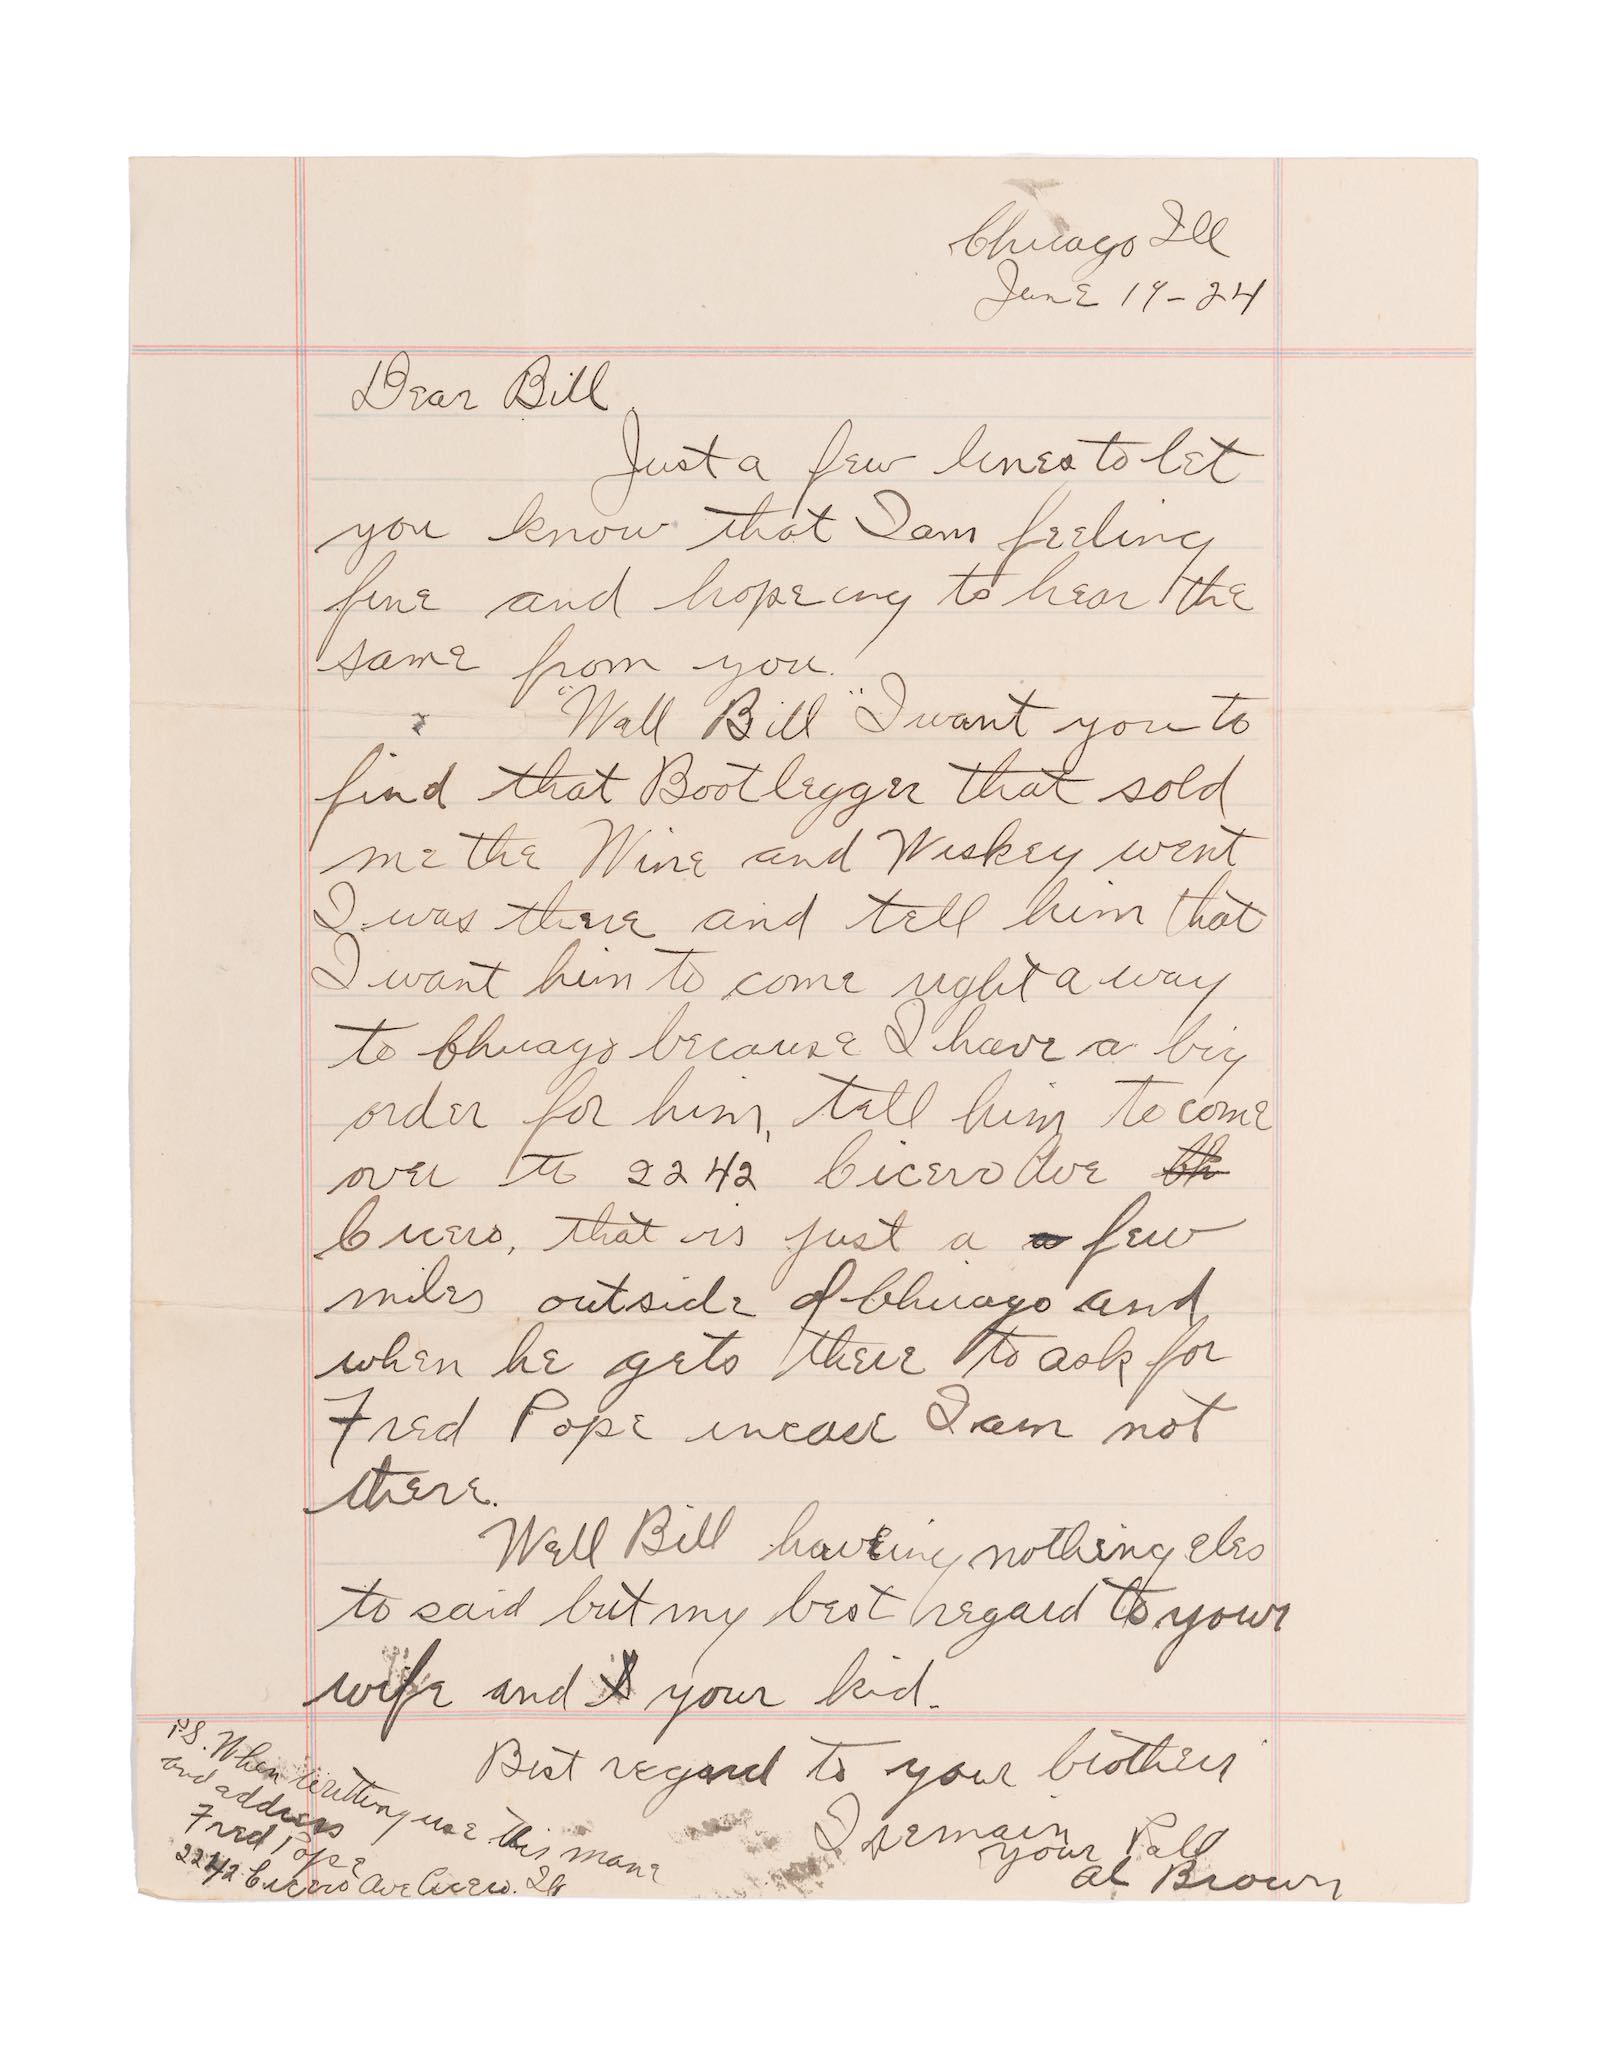 Chicago Ill
June 19-24
Dear Bill
Just a few lines to let
you know that I am feeling
fine and hopeing to hear the
same from you.
"Well Bill" I want you to
find that Bootlegger that sold
me the Wine and Wiskey went
I was there and tell him that
I want him to come right a way
to Chicago because I have a big
order for him, tell him to come
over to 2242 Cicero Ave
Cicero, that is just a few
miles outside of Chicago and
when he gets there to ask for
Fred Pope incase I am not
there.
Well Bill haveing nothing eles
to said but my best regard to your
wife and your kid.
Best regard to your brothers
I remain
your Pall
Al Brown
P.S. When writting use this mane
and address
Fred Pope
2242 Cicero Ave Cicero. Ill